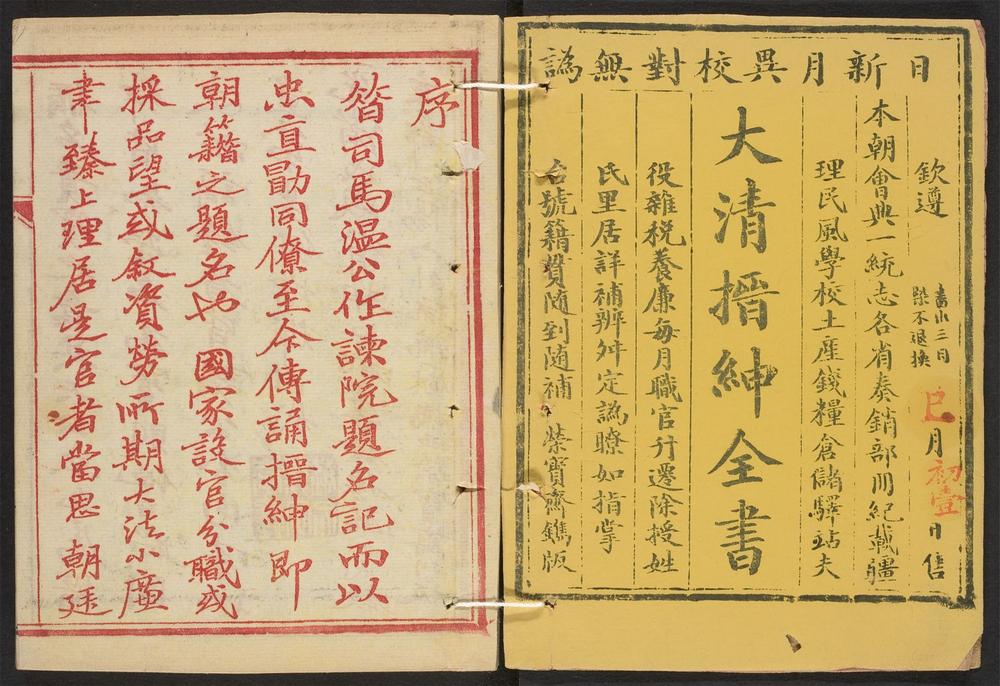 日新月異校對無譌
欽遵
書出三日
槩不退換
巳月初壹日售
本朝會典一統志各省奏銷部冊紀載疆
理民風學校土產錢糧倉儲驛站夫
大清搢紳全書
役雜税養廉每月職官行遷除授姓
氏里居詳補辨舛定譌瞭如指掌
台號籍貫隨到隨補 榮寶齋鐫版
序
昝司馬温公作諫院題名記而以
忠直勖同僚至今傳誦搢紳即
朝籍之題名也 國家設官分職或
採品望或叙資勞所期大法小廉
聿臻上理居是官者當思 朝廷